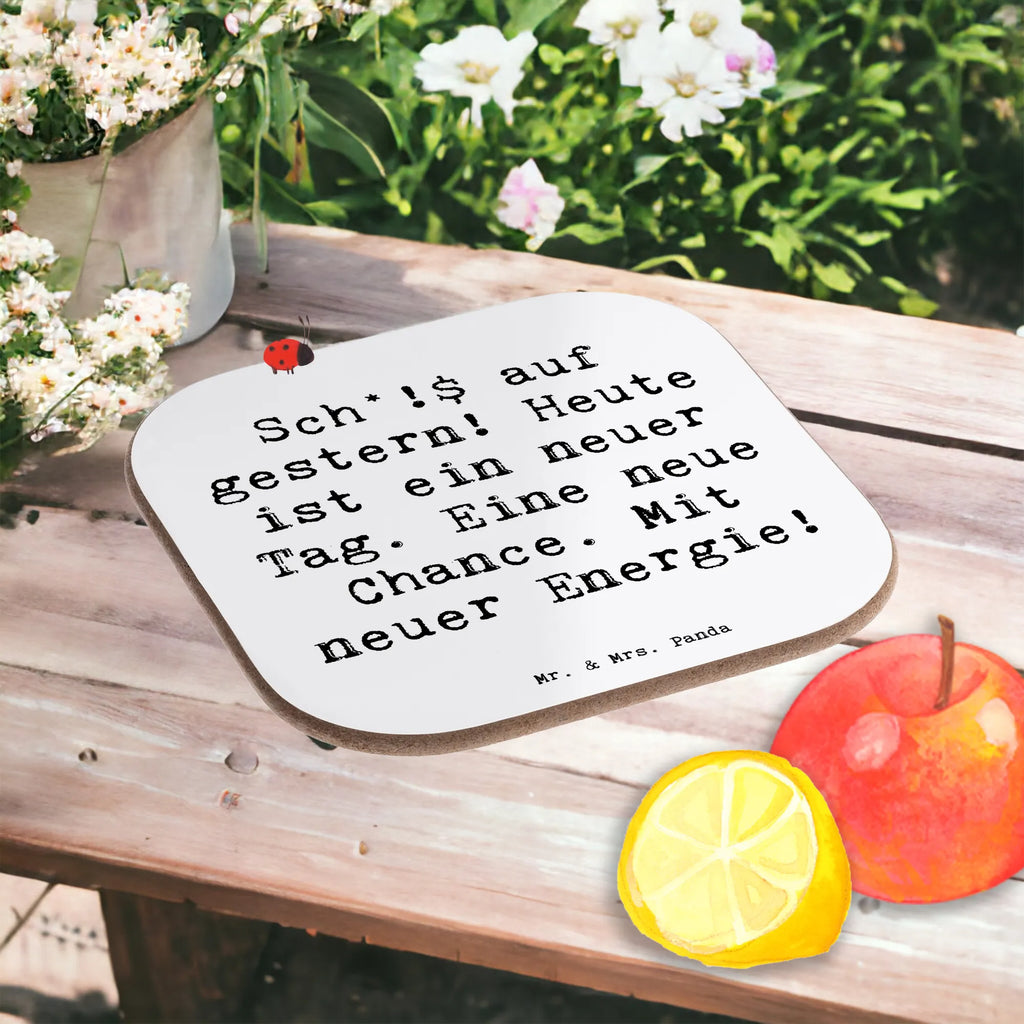 Sch*!$ auf
gestern! Heute
ist ein neuer
Tag. Eine neue
Chance. Mit
neuer Energie!
Mr. & Mrs. Panda